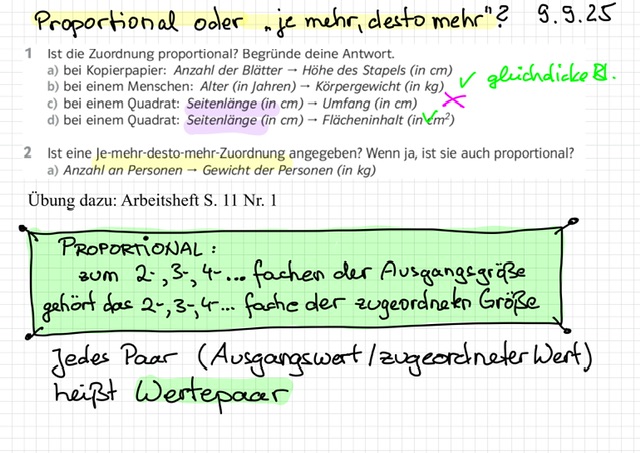 Proportional oder „je mehr, desto mehr"? 9.9.25
1 Ist die Zuordnung proportional? Begründe deine Antwort.
a) bei Kopierpapier: Anzahl der Blätter → Höhe des Stapels (in cm) ✓ gleichdicke Bl.
b) bei einem Menschen: Alter (in Jahren) → Körpergewicht (in kg)
c) bei einem Quadrat: Seitenlänge (in cm) → Umfang (in cm)
d) bei einem Quadrat: Seitenlänge (in cm) → Flächeninhalt (in cm²)
2 Ist eine Je-mehr-desto-mehr-Zuordnung angegeben? Wenn ja, ist sie auch proportional?
a) Anzahl an Personen → Gewicht der Personen (in kg)
Übung dazu: Arbeitsheft S. 11 Nr. 1
PROPORTIONAL:
zum 2-, 3-, 4- ... fachen der Ausgangsgröße
gehört das 2-, 3-, 4- ... fache der zugeordneten Größe
Jedes Paar (Ausgangswert/zugeordneter Wert)
heißt Wertepaar